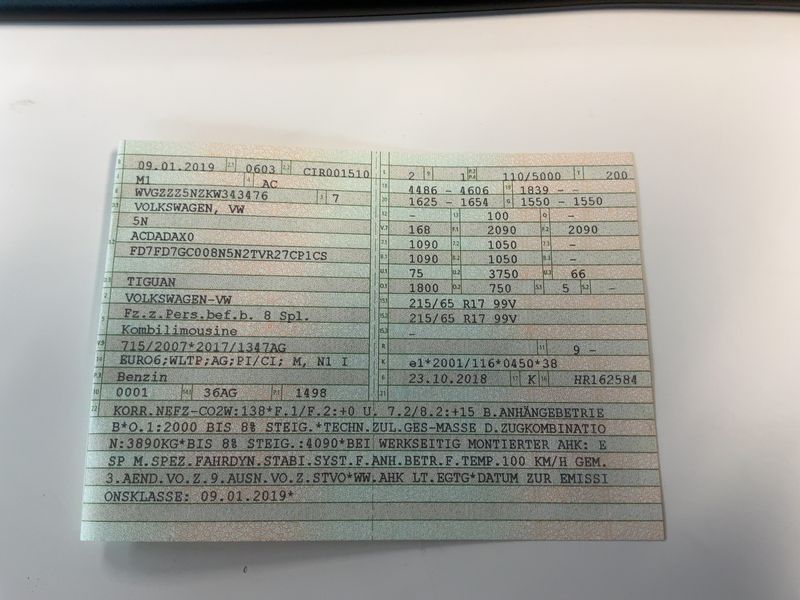 09.01.2019 0603 CIR001510
M1 AC
WVGZZZ5NZKW343476 7
VOLKSWAGEN, VW
5N
ACDADAX0
FD7FD7GC008N5N2TVR27CP1CS
TIGUAN
VOLKSWAGEN-VW
Fz.z.Pers.bef.b. 8 Spl.
Kombilimousine
715/2007*2017/1347AG
EURO6;WLTP;AG;PI/CI; M, N1 I
Benzin
0001 36AG 1498
2 1 110/5000 200
4486 - 4606 1839 - -
1625 - 1654 1550 - 1550
- 100 -
168 2090 2090
1090 1050 -
1090 1050 -
75 3750 66
1800 750 5 -
215/65 R17 99V
215/65 R17 99V
-
9 -
e1*2001/116*0450*38
23.10.2018 K HR162584
KORR.NEFZ-CO2W:138*F.1/F.2:+0 U. 7.2/8.2:+15 B.ANHÄNGEBETRIE
B*O.1:2000 BIS 8% STEIG.*TECHN.ZUL.GES-MASSE D.ZUGKOMBINATIO
N:3890KG*BIS 8% STEIG.:4090*BEI WERKSEITIG MONTIERTER AHK: E
SP M.SPEZ.FAHRDYN.STABI.SYST.F.ANH.BETR.F.TEMP.100 KM/H GEM.
3.AEND.VO.Z.9.AUSN.VO.Z.STVO*WW.AHK LT.EGTG*DATUM ZUR EMISSI
ONSKLASSE: 09.01.2019*